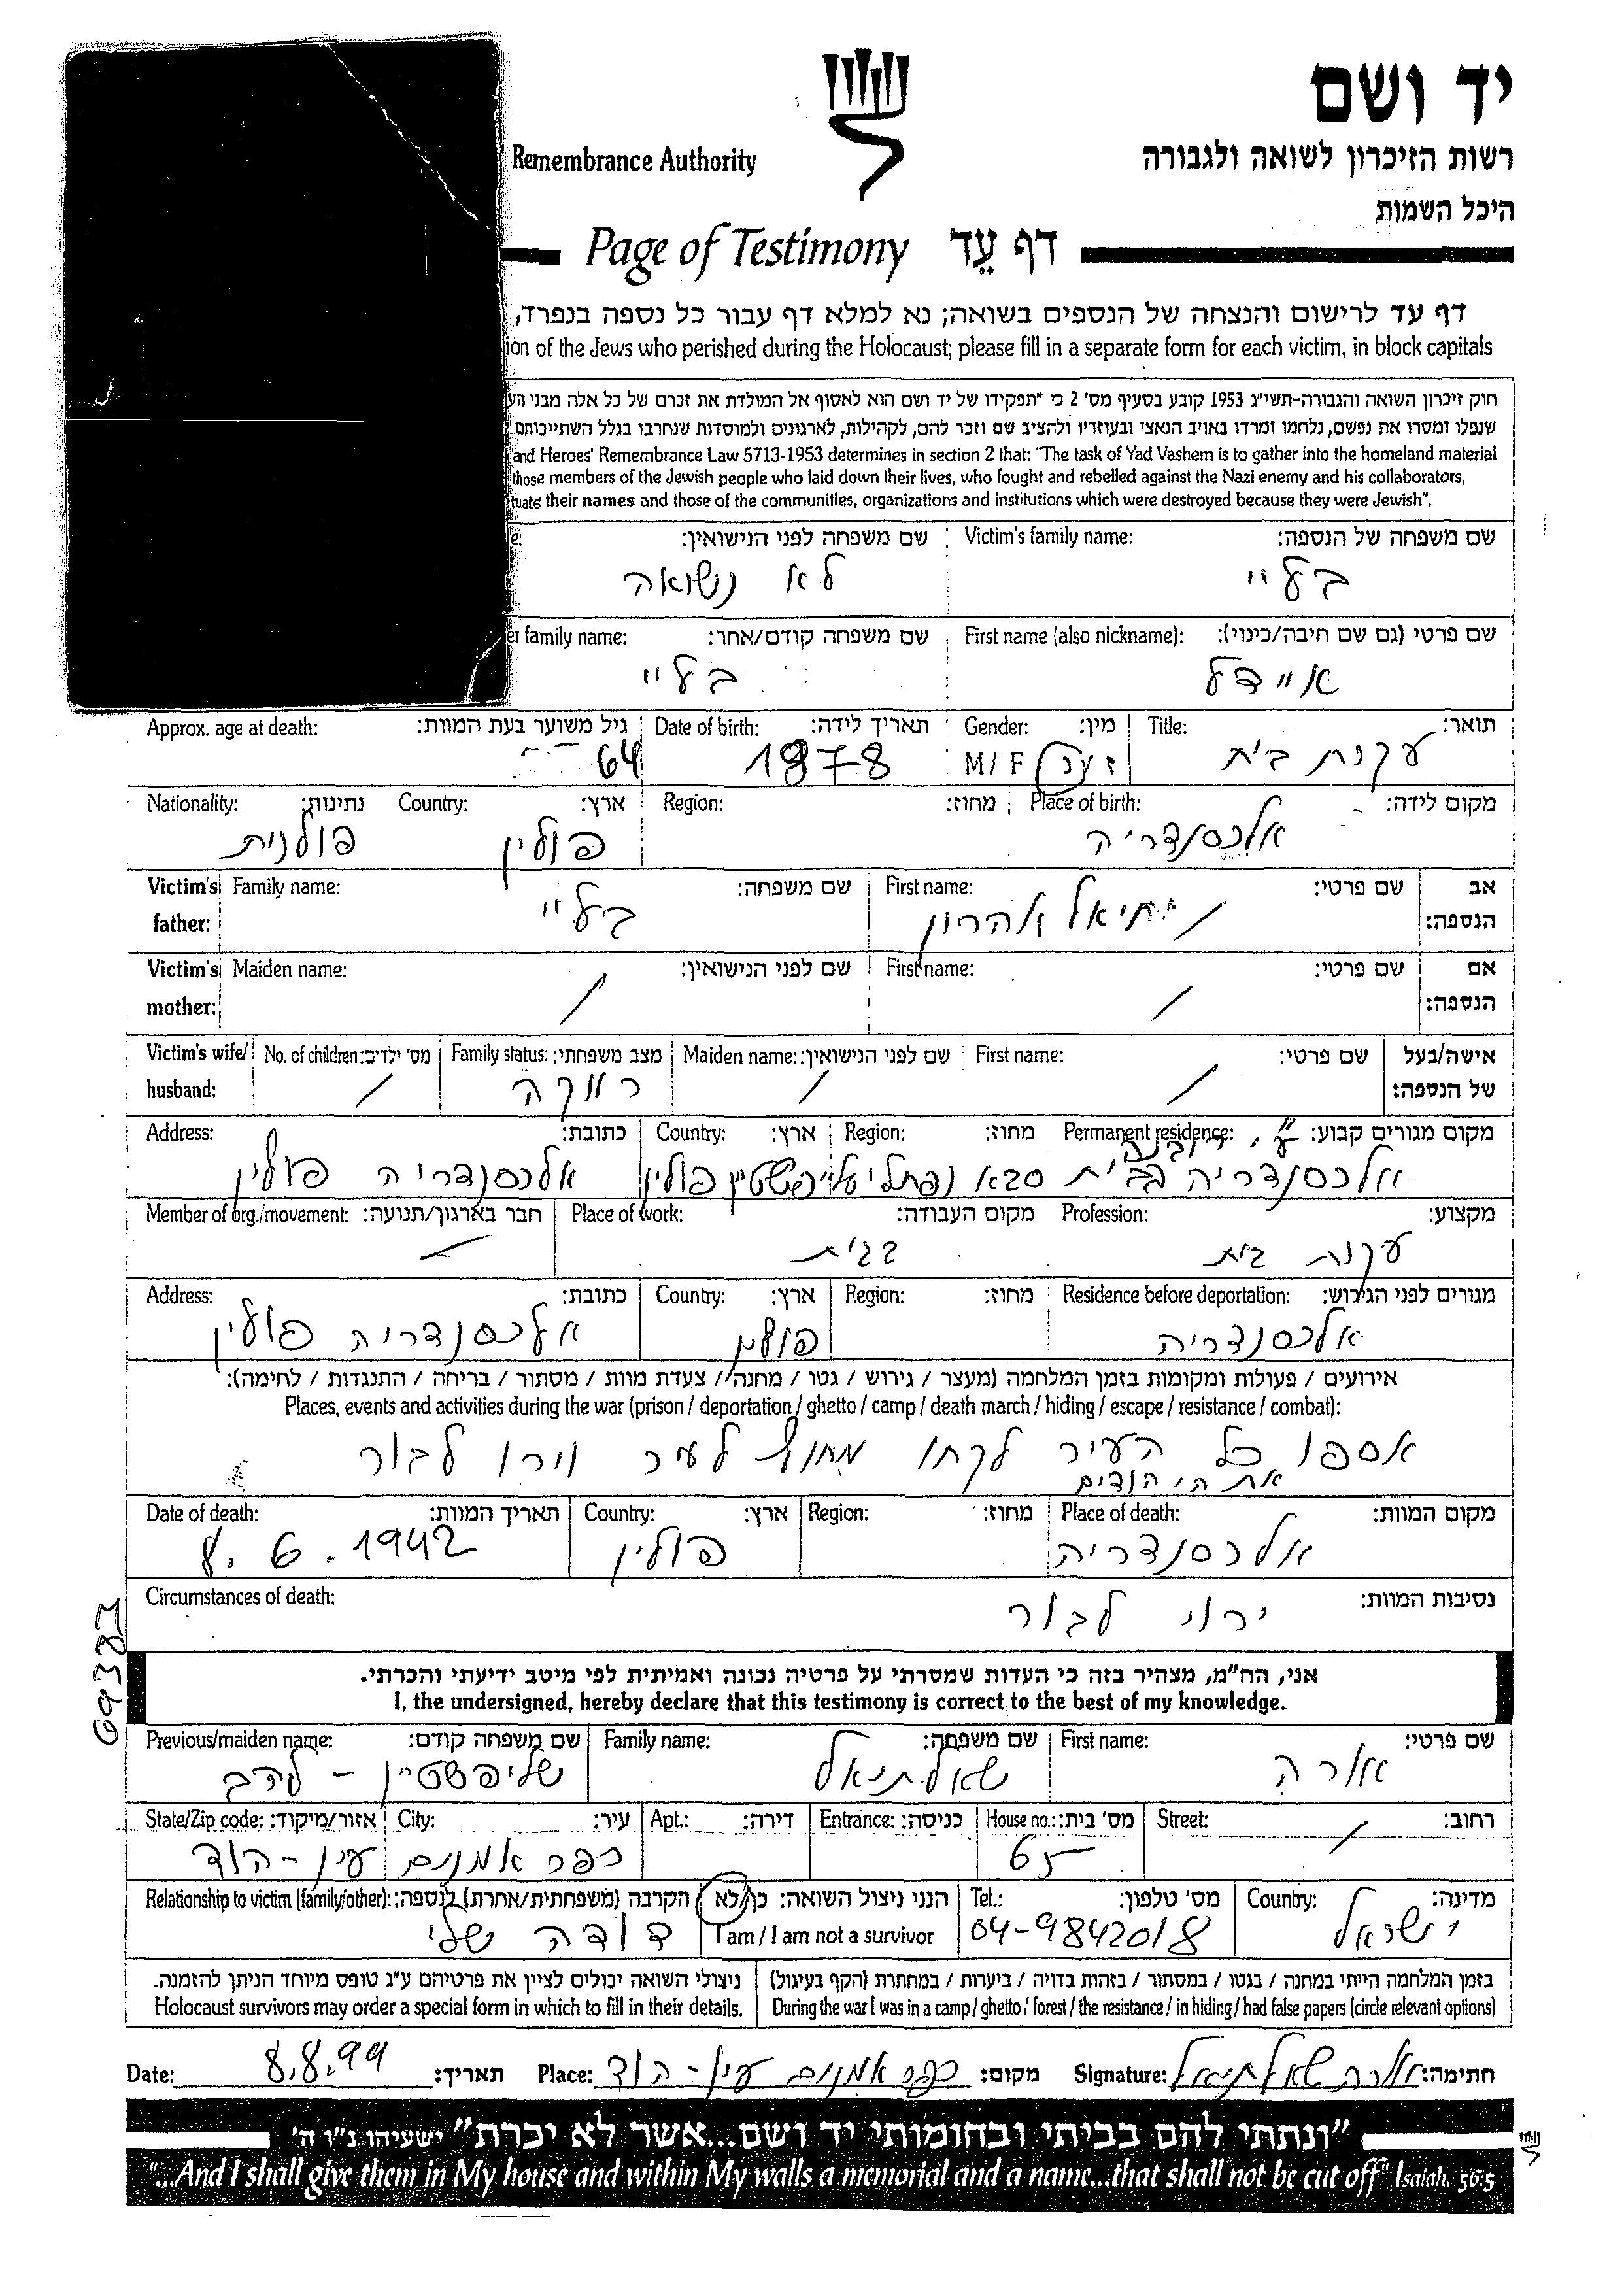 יד ושם
רשות הזיכרון לשואה ולגבורה
Remembrance Authority
היכל השמות
דף עֵד Page of Testimony
דף עד לרישום והנצחה של הנספים בשואה; נא למלא דף עבור כל נספה בנפרד,
ion of the Jews who perished during the Holocaust; please fill in a separate form for each victim, in block capitals
חוק זיכרון השואה והגבורה-תשי"ג 1953 קובע בסעיף מס' 2 כי "תפקידו של יד ושם הוא לאסוף אל המולדת את זכרם של כל אלה מבני הע
שנפלו ומסרו את נפשם, נלחמו ומרדו באויב הנאצי ובעוזריו ולהציב שם וזכר להם, לקהילות, לארגונים ולמוסדות שנחרבו בגלל השתייכותם
and Heroes' Remembrance Law 5713-1953 determines in section 2 that: "The task of Yad Vashem is to gather into the homeland material
those members of the Jewish people who laid down their lives, who fought and rebelled against the Nazi enemy and his collaborators,
tuate their names and those of the communities, organizations and institutions which were destroyed because they were Jewish".
שם משפחה של הנספה: Victim's family name: שם משפחה לפני הנישואין: e:
בעליי לא נשואה
שם פרטי (גם שם חיבה/כינוי): First name (also nickname): שם משפחה קודם/אחר: er family name:
איידל
תואר: Title: מין: Gender: תאריך לידה: Date of birth: גיל משוער בעת המוות: Approx. age at death:
עקרת בית זכר/נק M/F 1878 64
מקום לידה: Place of birth: מחוז: Region: ארץ: Country: נתינות: Nationality:
אלכסנדריה פולין פולנית
אב שם פרטי: First name: שם משפחה: Family name: Victim's
הנספה: יתיאל אהרון father:
אם שם פרטי: First name: שם לפני הנישואין: Maiden name: Victim's
הנספה: / / mother:
אישה/בעל שם פרטי: First name: שם לפני הנישואין: Maiden name: מצב משפחתי: Family status: מס' ילדים: No. of children: Victim's wife/
של הנספה: / / רווקה / husband:
מקום מגורים קבוע: Permanent residence: מחוז: Region: ארץ: Country: כתובת: Address:
אלכסנדריה בבית סבא נפתלי שליפשטיין פולין אלכסנדריה פולין
מקצוע: Profession: מקום העבודה: Place of work: חבר בארגון/תנועה: Member of org./movement:
עקרת בית בבית
מגורים לפני הגירוש: Residence before deportation: מחוז: Region: ארץ: Country: כתובת: Address:
אלכסנדריה פולין אלכסנדריה פולין
אירועים / פעולות ומקומות בזמן המלחמה (מעצר / גירוש / גטו / מחנה / צעדת מוות / מסתור / בריחה / התנגדות / לחימה):
Places, events and activities during the war (prison / deportation / ghetto / camp / death march / hiding / escape / resistance / combat):
אספו כל העיר לקחו מחוץ לעיר וירו לבור
את היהודים
מקום המוות: Place of death: מחוז: Region: ארץ: Country: תאריך המוות: Date of death:
אלכסנדריה פולין 8.6.1942
נסיבות המוות: Circumstances of death:
ירוי לבור
69387
אני, הח"מ, מצהיר בזה כי העדות שמסרתי על פרטיה נכונה ואמיתית לפי מיטב ידיעתי והכרתי.
I, the undersigned, hereby declare that this testimony is correct to the best of my knowledge.
שם פרטי: First name: שם משפחה: Family name: שם משפחה קודם: Previous/maiden name:
אורה שאלתיאל שליפשטיין - להב
רחוב: Street: מס' בית: House no.: כניסה: Entrance: דירה: Apt.: עיר: City: אזור/מיקוד: State/Zip code:
/ 65 כפר אמנים עין-הוד
מדינה: Country: מס' טלפון: Tel.: הנני ניצול השואה: כן/לא הקרבה (משפחתית/אחרת) לנספה: Relationship to victim (family/other):
ישראל 04-9842018 I am / I am not a survivor דודה שלי
בזמן המלחמה הייתי במחנה / בגטו / במסתור / בזהות בדויה / ביערות / במחתרת (הקף בעיגול) ניצולי השואה יכולים לציין את פרטיהם ע"ג טופס מיוחד הניתן להזמנה.
During the war I was in a camp / ghetto / forest / the resistance / in hiding / had false papers (circle relevant options) Holocaust survivors may order a special form in which to fill in their details.
חתימה: אורה שאלתיאל Signature: מקום: כפר אמנים עין-הוד Place: תאריך: 8.8.99 Date:
"ונתתי להם בביתי ובחומותי יד ושם...אשר לא יכרת" ישעיהו נ"ו ה'
"...And I shall give them in My house and within My walls a memorial and a name...that shall not be cut off" Isaiah, 56:5